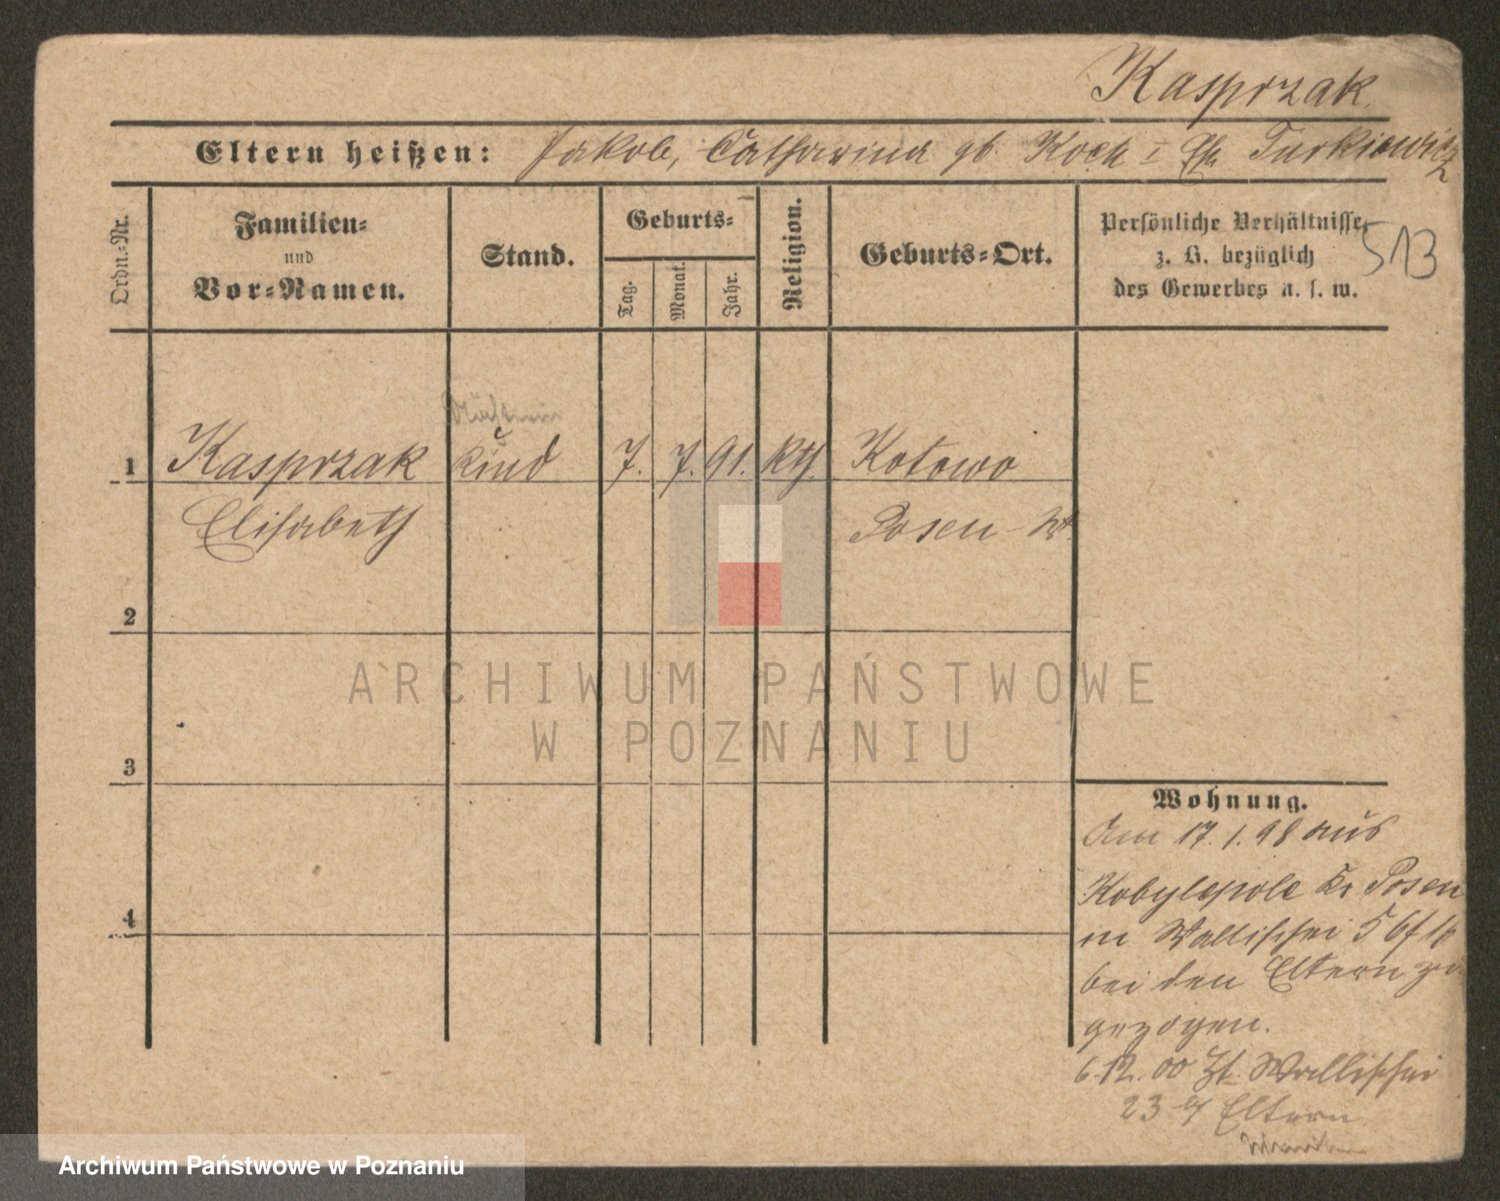 Kasprzak
Eltern heißen: Jakob, Catharina gb. Koch I Turkiewicz
Ordn.-Nr.
Familien-
und
Vor-Namen.
Stand.
Geburts-
Tag.
Monat.
Jahr.
Religion.
Geburts-Ort.
Persönliche Verhältnisse,
z. B. bezüglich
des Gewerbes u. s. w.
513
1 Kasprzak Kind 7. 7. 91. kth. Kotowo
Elisabeth Posen
2
3
4
Wohnung.
Am 17.1.98 aus
Kobylepole Kr Posen
in Wallischei
bei den Eltern zu
gezogen.
6.12.00 Wallischei
23 Eltern
ARCHIWUM PAŃSTWOWE
W POZNANIU
Archiwum Państwowe w Poznaniu